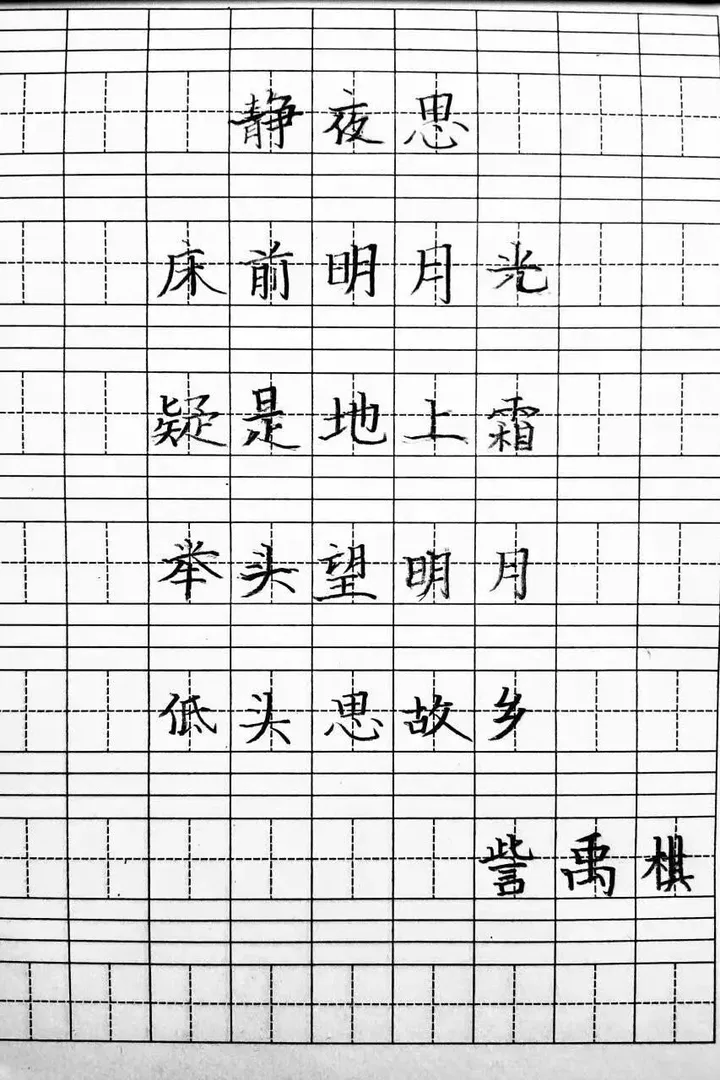 静夜思
床前明月光
疑是地上霜
举头望明月
低头思故乡
訾禹棋